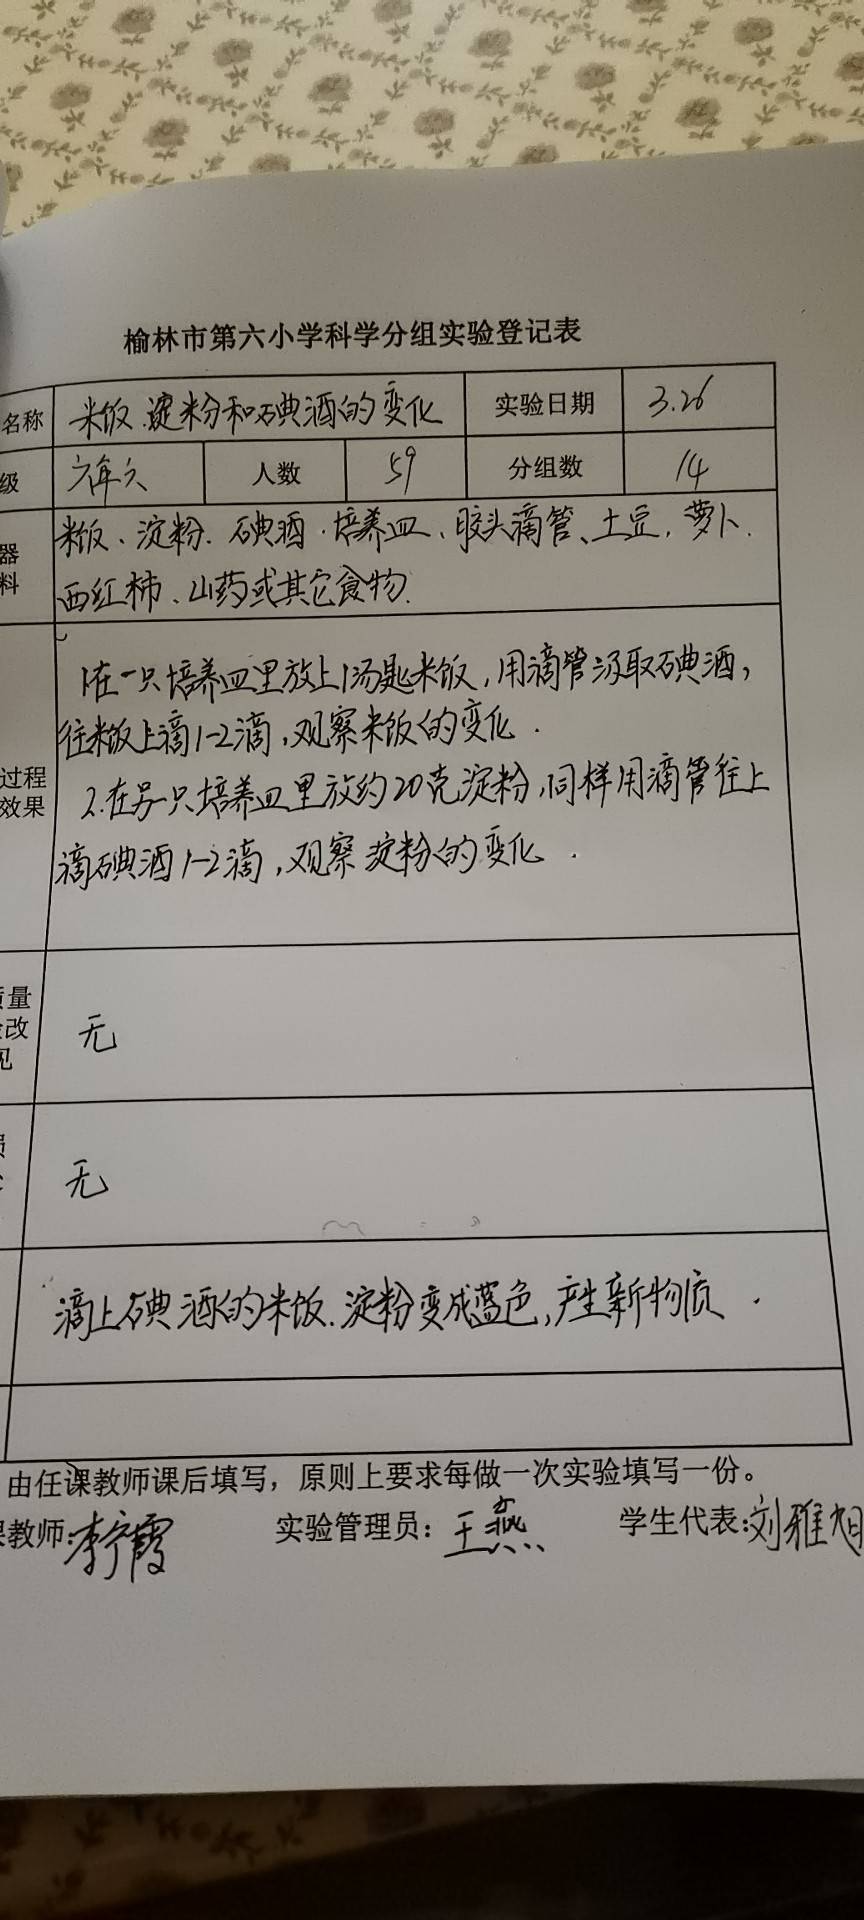 榆林市第六小学科学分组实验登记表
名称 米饭.淀粉和碘酒的变化 实验日期 3.26
级 六年六 人数 59 分组数 14
器 米饭、淀粉.碘酒.培养皿、胶头滴管、土豆.萝卜.
料 西红柿、山药或其它食物.
1在一只培养皿里放上1汤匙米饭,用滴管汲取碘酒,
往米饭上滴1-2滴,观察米饭的变化.
过程 2.在另一只培养皿里放约20克淀粉,同样用滴管往上
效果 滴碘酒1-2滴,观察淀粉的变化.
质量
改 无
见
无
滴上碘酒的米饭.淀粉变成蓝色,产生新物质.
由任课教师课后填写，原则上要求每做一次实验填写一份。
课教师: 霞 实验管理员：王燕 学生代表:刘雅旭